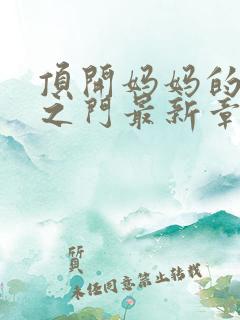 頂開妈妈的
之门最新章
質
未经同意禁止转载